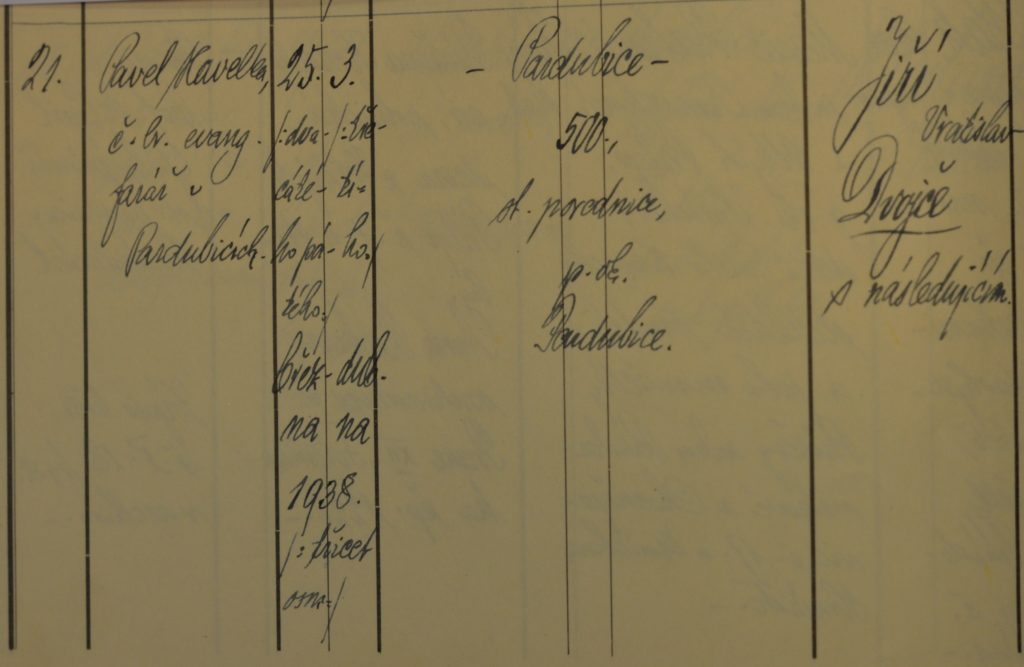 21.
Pavel Kavelka,
č. br. evang.
farář v
Pardubicích.
25. 3.
/:dva- /:tře-
cáté- tí-
ho pá- ho:/
tého:/
břez- dub-
na na
1938.
/:třicet
osm:/
- Pardubice -
500.,
st. porodnice,
p. ok.
Pardubice.
Jiří
Vratislav
Dvojče
s následujícím.